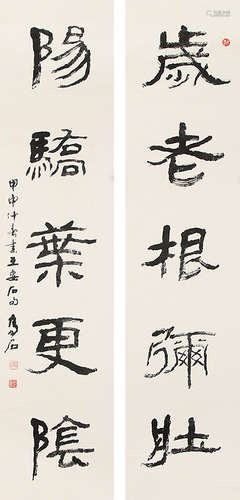 歲老根彌壯
陽驕葉更陰
甲申仲春書王安石句